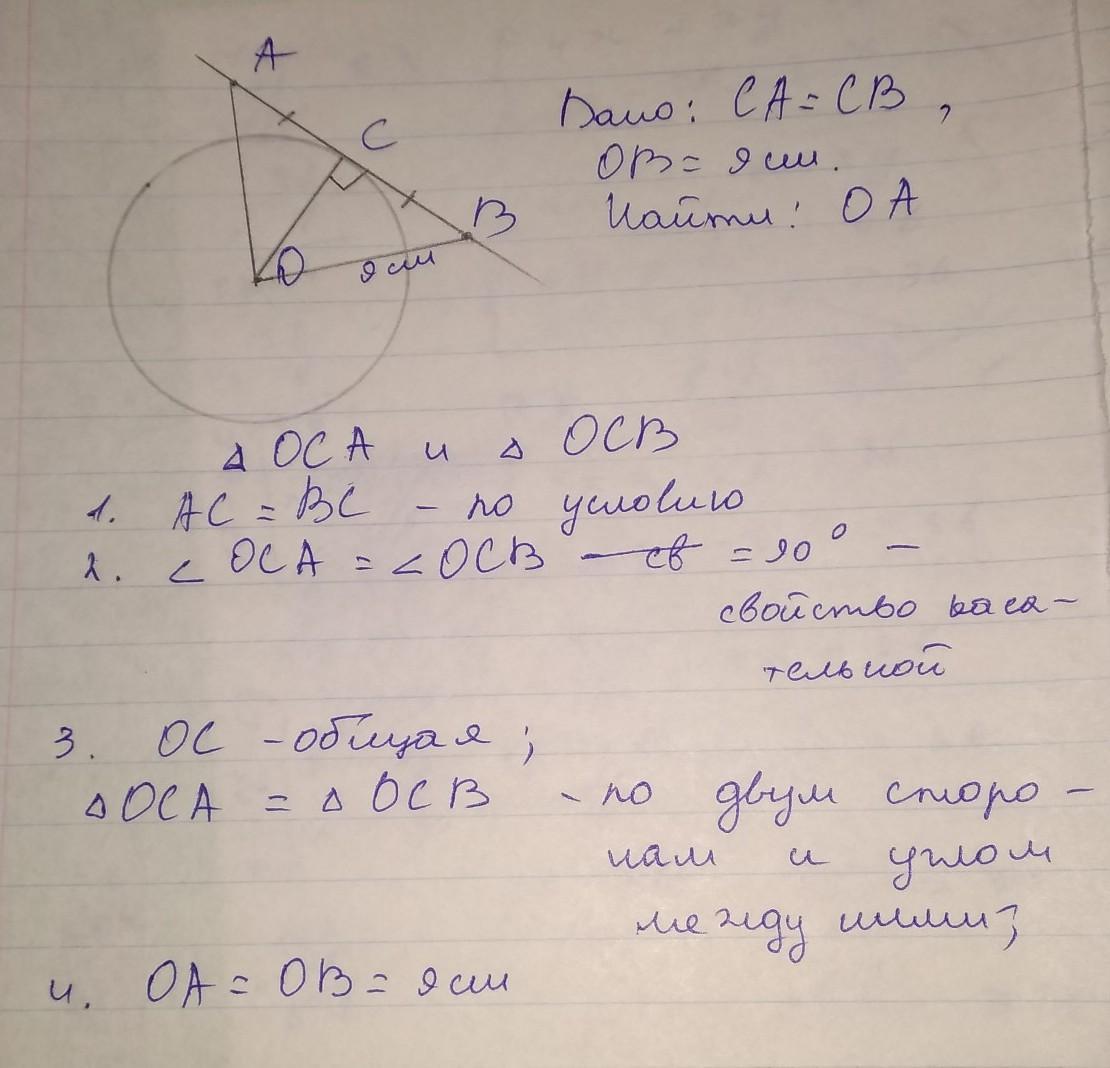 A
C
B
O
9 см
Дано: CA = CB ,
OB = 9 см.
Найти: OA
△ OCA и △ OCB
1. AC = BC – по условию
2. ∠ OCA = ∠ OCB св = 90° –
свойство каса–
тельной
3. OC – общая ;
△ OCA = △ OCB – по двум сторо –
нам и углом
между ними;
4. OA = OB = 9 см